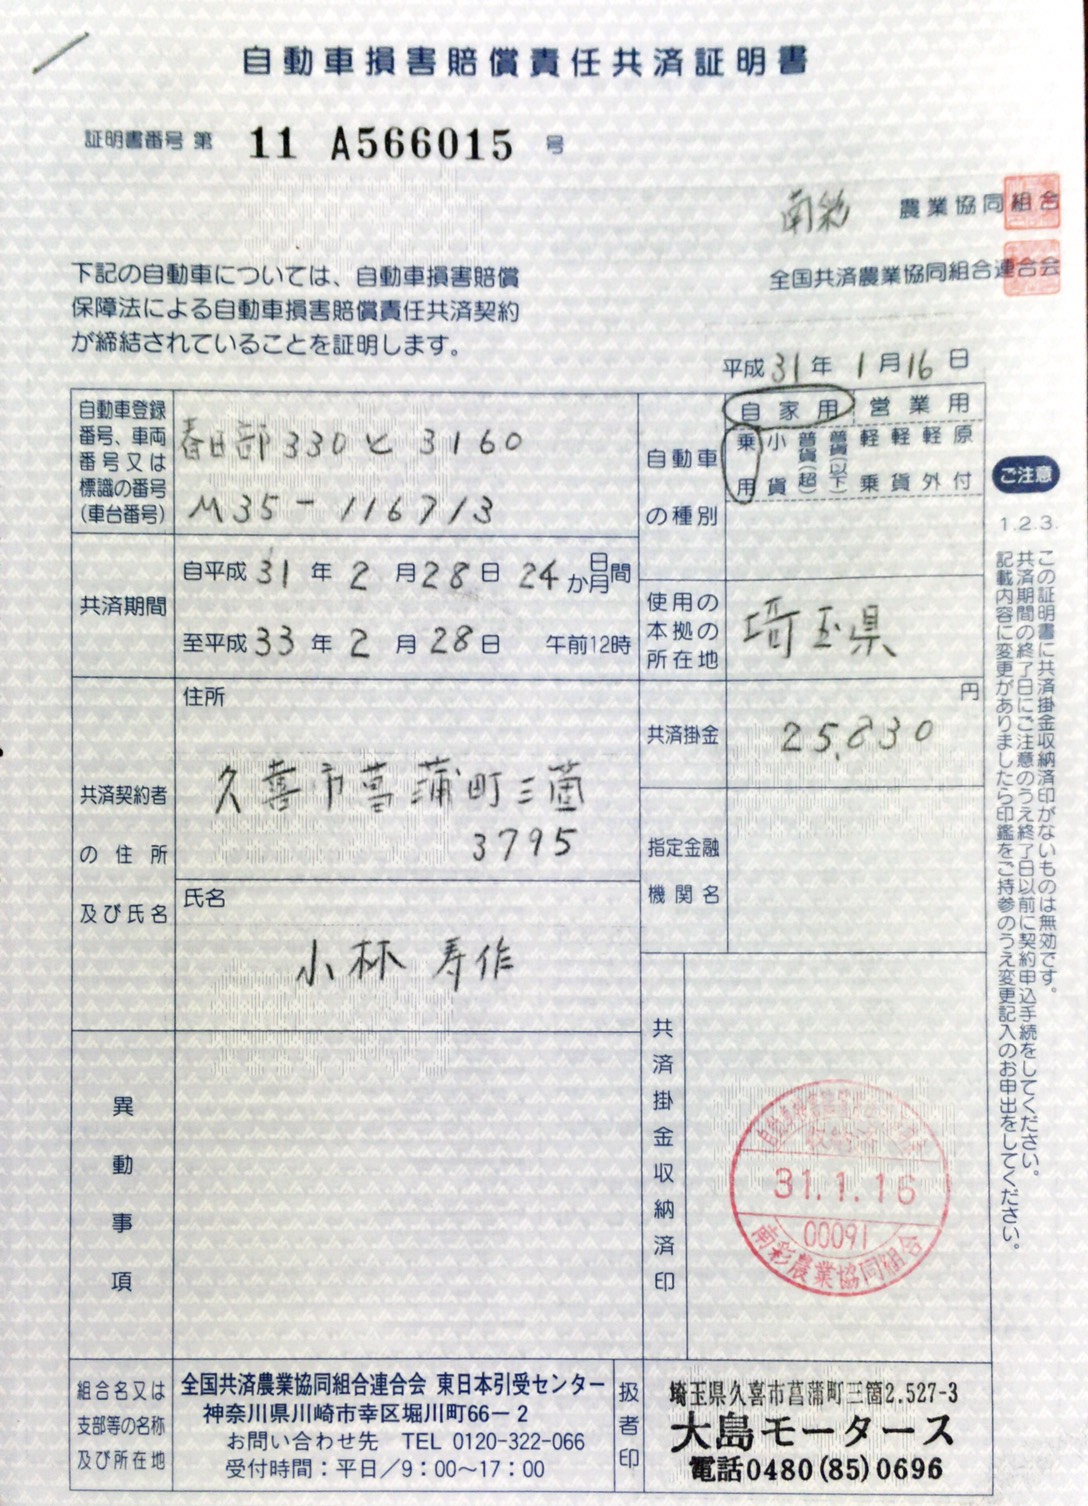 自動車損害賠償責任共済証明書
証明書番号 第 11 A566015 号
南彩 農業協同組合
全国共済農業協同組合連合会
下記の自動車については、自動車損害賠償
保障法による自動車損害賠償責任共済契約
が締結されていることを証明します。
平成 31 年 1 月 16 日
自動車登録
番号、車両
番号又は
標識の番号
(車台番号)
春日部 330 と 3160
M35-116713
自動車
の種別
自家用 営業用
乗用 小貨 普貨(超) 普貨(以下) 軽乗 軽貨 軽外 原付
共済期間
自平成 31 年 2 月 28 日 24 か日月間
至平成 33 年 2 月 28 日 午前12時
使用の
本拠の
所在地
埼玉県
共済契約者
の住所
及び氏名
住所
久喜市菖蒲町三箇
3795
氏名
小林 寿作
共済掛金
円
25,830
指定金融
機関名
異動事項
共済掛金収納済印
31.1.16
00091
南彩農業協同組合
組合名又は
支部等の名称
及び所在地
全国共済農業協同組合連合会 東日本引受センター
神奈川県川崎市幸区堀川町66-2
お問い合わせ先 TEL 0120-322-066
受付時間:平日/9:00~17:00
扱者印
埼玉県久喜市菖蒲町三箇2.527-3
大島モータース
電話0480(85)0696
ご注意
1.2.3.
この証明書に共済掛金収納済印がないものは無効です。
共済期間の終了日にご注意のうえ終了日以前に契約申込手続をしてください。
記載内容に変更がありましたら印鑑をご持参のうえ変更記入のお申出をしてください。